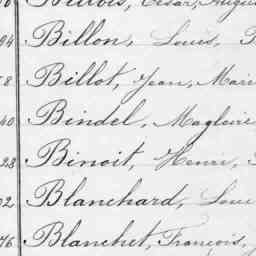 César, Augu
94 Billon, Louis,
8 Billot, Jean, Marie
40 Bindel, Magloire
28 Binoit, Henri,
02 Blanchard, Loui
76 Blanchet, François,